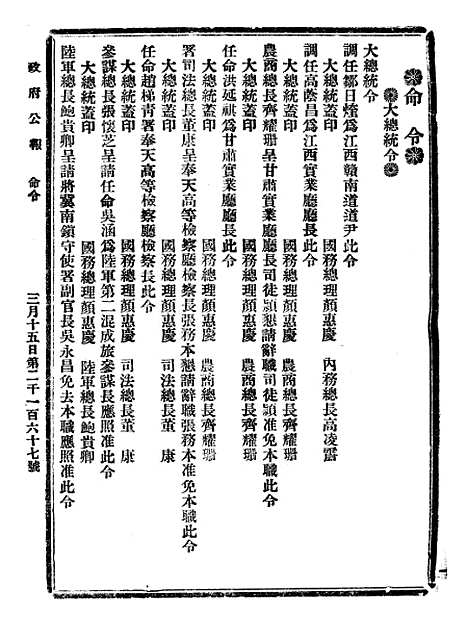 命令
大總統令
大總統令
調任鄒日煃爲江西贛南道道尹此令
大總統蓋印 國務總理顏惠慶 內務總長高凌霨
調任高蔭昌爲江西實業廳廳長此令
大總統蓋印 國務總理顏惠慶 農商總長齊耀珊
農商總長齊耀珊呈甘肅實業廳廳長司徒潁懇請辭職司徒潁准免本職此令
大總統蓋印 國務總理顏惠慶 農商總長齊耀珊
任命洪延祺爲甘肅實業廳廳長此令
大總統蓋印 國務總理顏惠慶 農商總長齊耀珊
署司法總長董康呈奉天高等檢察廳檢察長張務本懇請辭職張務本准免本職此令
大總統蓋印 國務總理顏惠慶 司法總長董 康
任命趙梯青署奉天高等檢察廳檢察長此令
大總統蓋印 國務總理顏惠慶 司法總長董 康
參謀總長張懷芝呈請任命吳涵爲陸軍第二混成旅參謀長應照准此令
大總統蓋印 國務總理顏惠慶 陸軍總長鮑貴卿
陸軍總長鮑貴卿呈請將冀南鎮守使署副官長吳永昌免去本職應照准此令
政府公報 命令 三月十五日第二千一百六十七號